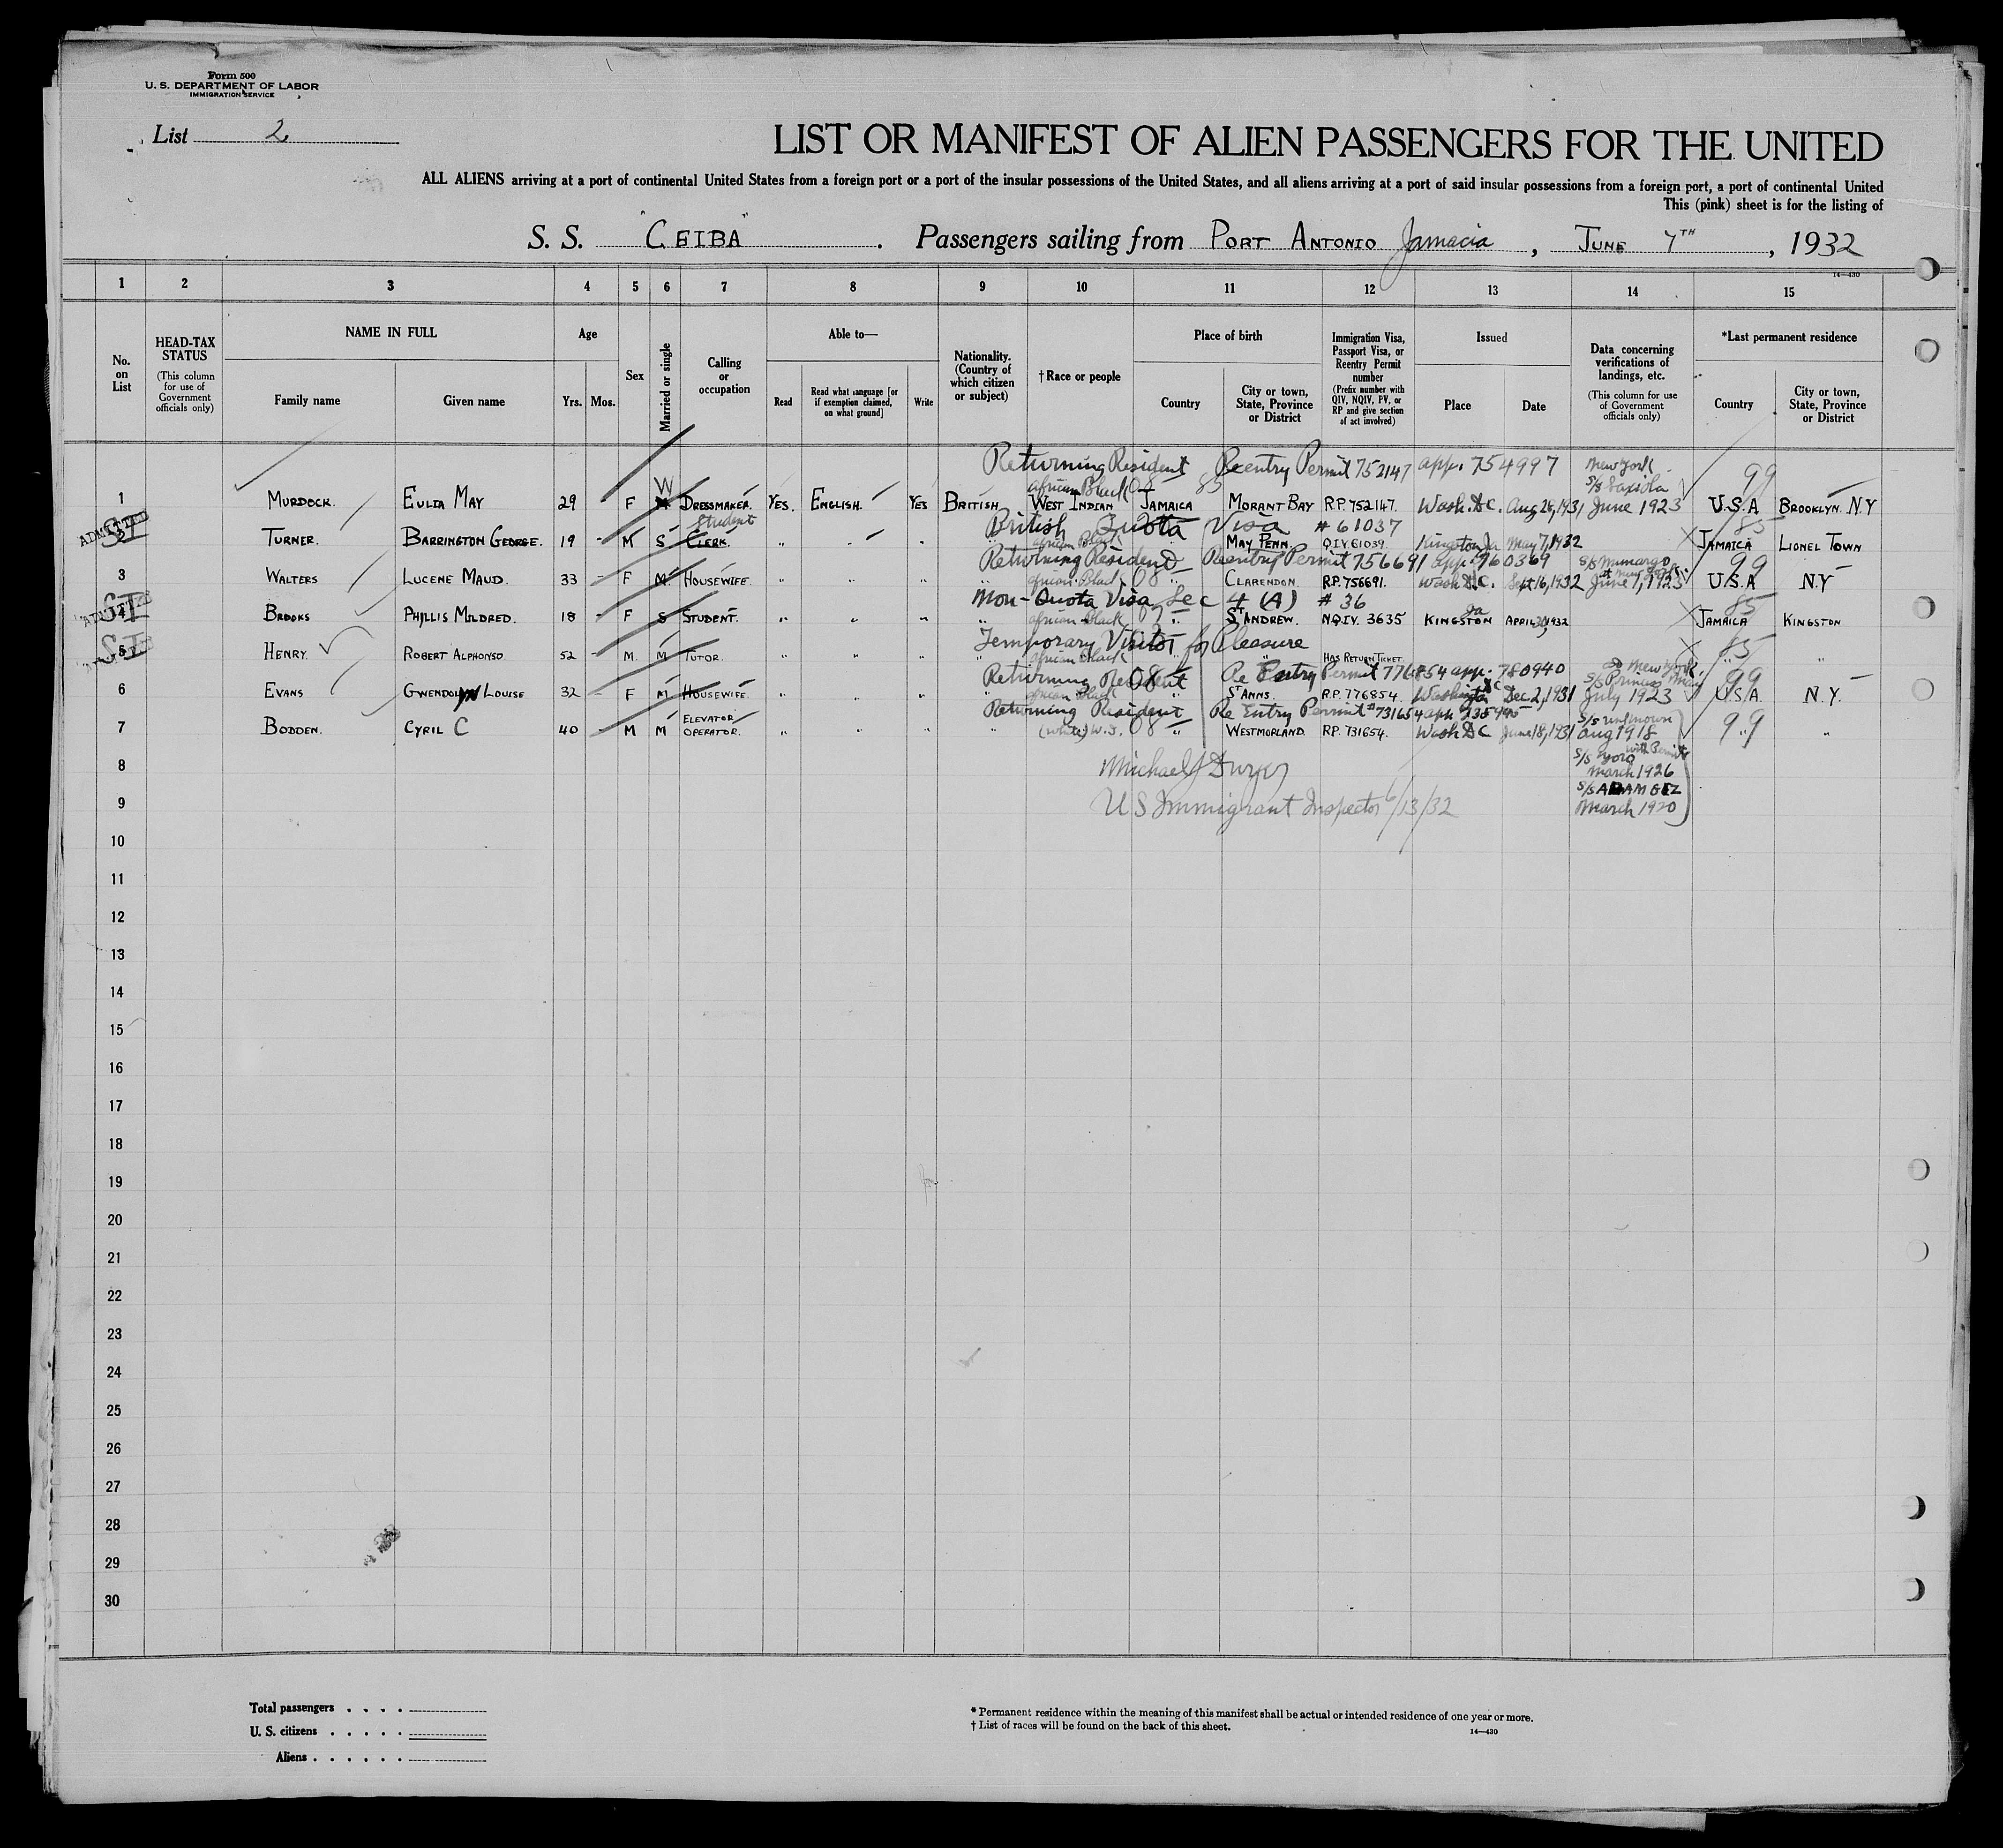 Form 500
U. S. DEPARTMENT OF LABOR
IMMIGRATION SERVICE
List 2
LIST OR MANIFEST OF ALIEN PASSENGERS FOR THE UNITED
ALL ALIENS arriving at a port of continental United States from a foreign port or a port of the insular possessions of the United States, and all aliens arriving at a port of said insular possessions from a foreign port, a port of continental United
This (pink) sheet is for the listing of
S. S. "CEIBA". Passengers sailing from PORT ANTONIO Jamacia, JUNE 7TH, 1932
14—430
1 2 3 4 5 6 7 8 9 10 11 12 13 14 15
No. on List
HEAD-TAX STATUS (This column for use of Government officials only)
NAME IN FULL Family name Given name
Age Yrs. Mos.
Sex
Married or single
Calling or occupation
Able to— Read Read what language [or if exemption claimed, on what ground] Write
Nationality. (Country of which citizen or subject)
† Race or people
Place of birth Country City or town, State, Province or District
Immigration Visa, Passport Visa, or Reentry Permit number (Prefix number with QIV, NQIV, PV, or RP and give section of act involved)
Issued Place Date
Data concerning verifications of landings, etc. (This column for use of Government officials only)
*Last permanent residence Country City or town, State, Province or District
Returning Resident Reentry Permit 752147 app. 754997 New York
W african Black 08 85 99
1 MURDOCK. EULIA MAY 29 - F M DRESSMAKER. YES. ENGLISH. YES BRITISH WEST INDIAN JAMAICA MORANT BAY R.P. 752147. Wash. D.C. Aug 28, 1931 June 1923 U.S.A BROOKLYN. N.Y
ADMITTED SI Student British Quota Visa # 61037 85
TURNER. BARRINGTON GEORGE. 19 - M S CLERK. " " " african Black MAY PENN. QIV 61039. Kingston Ja May 7, 1932 JAMAICA LIONEL TOWN
Returning Resident Reentry Permit 756691 app. 760369 S/S Munargo 99
3 WALTERS LUCENE MAUD. 33 - F M HOUSEWIFE. " " " " african Black 08 " CLARENDON. R.P. 756691. Wash D.C. Sept 16, 1932 June 1, 1923 U.S.A N.Y
ADMITTED SI Non-Quota Visa Sec 4 (A) # 36 85
4 BROOKS PHYLLIS MILDRED. 18 - F S STUDENT. " " " " african Black " ST ANDREW. NQIV. 3635 KINGSTON Ja APRIL 1932 JAMAICA KINGSTON
SI Temporary Visitor for Pleasure 85
5 HENRY. ROBERT ALPHONSO. 52 - M. M TUTOR. " " " " african Black " " HAS RETURN TICKET. " "
Returning Resident 08 Re Entry Permit 776854 app. 780940 New York, 99
6 EVANS GWENDOLYN LOUISE 32 - F M HOUSEWIFE. " " " " african Black " ST ANNS. R.P. 776854. Washington DC Dec 2, 1931 S/S Princess May July 1923 U.S.A. N.Y.
Returning Resident Re Entry Permit # 731654 app 735995 S/S unknown
7 BODDEN. CYRIL C 40 - M M ELEVATOR OPERATOR. " " " " (white) W.I. 08 " WESTMORLAND. RP. 731654. Wash DC June 18, 1931 Aug 1918 99 " "
with Permit
8 S/S Yoro March 1926
Michael J
9 S/S March 1920
US Immigrant Inspector 6/13/32
10
11
12
13
14
15
16
17
18
19
20
21
22
23
24
25
26
27
28
29
30
Total passengers . . . .
U. S. citizens . . . . .
Aliens . . . . . .
* Permanent residence within the meaning of this manifest shall be actual or intended residence of one year or more.
† List of races will be found on the back of this sheet.
14—430